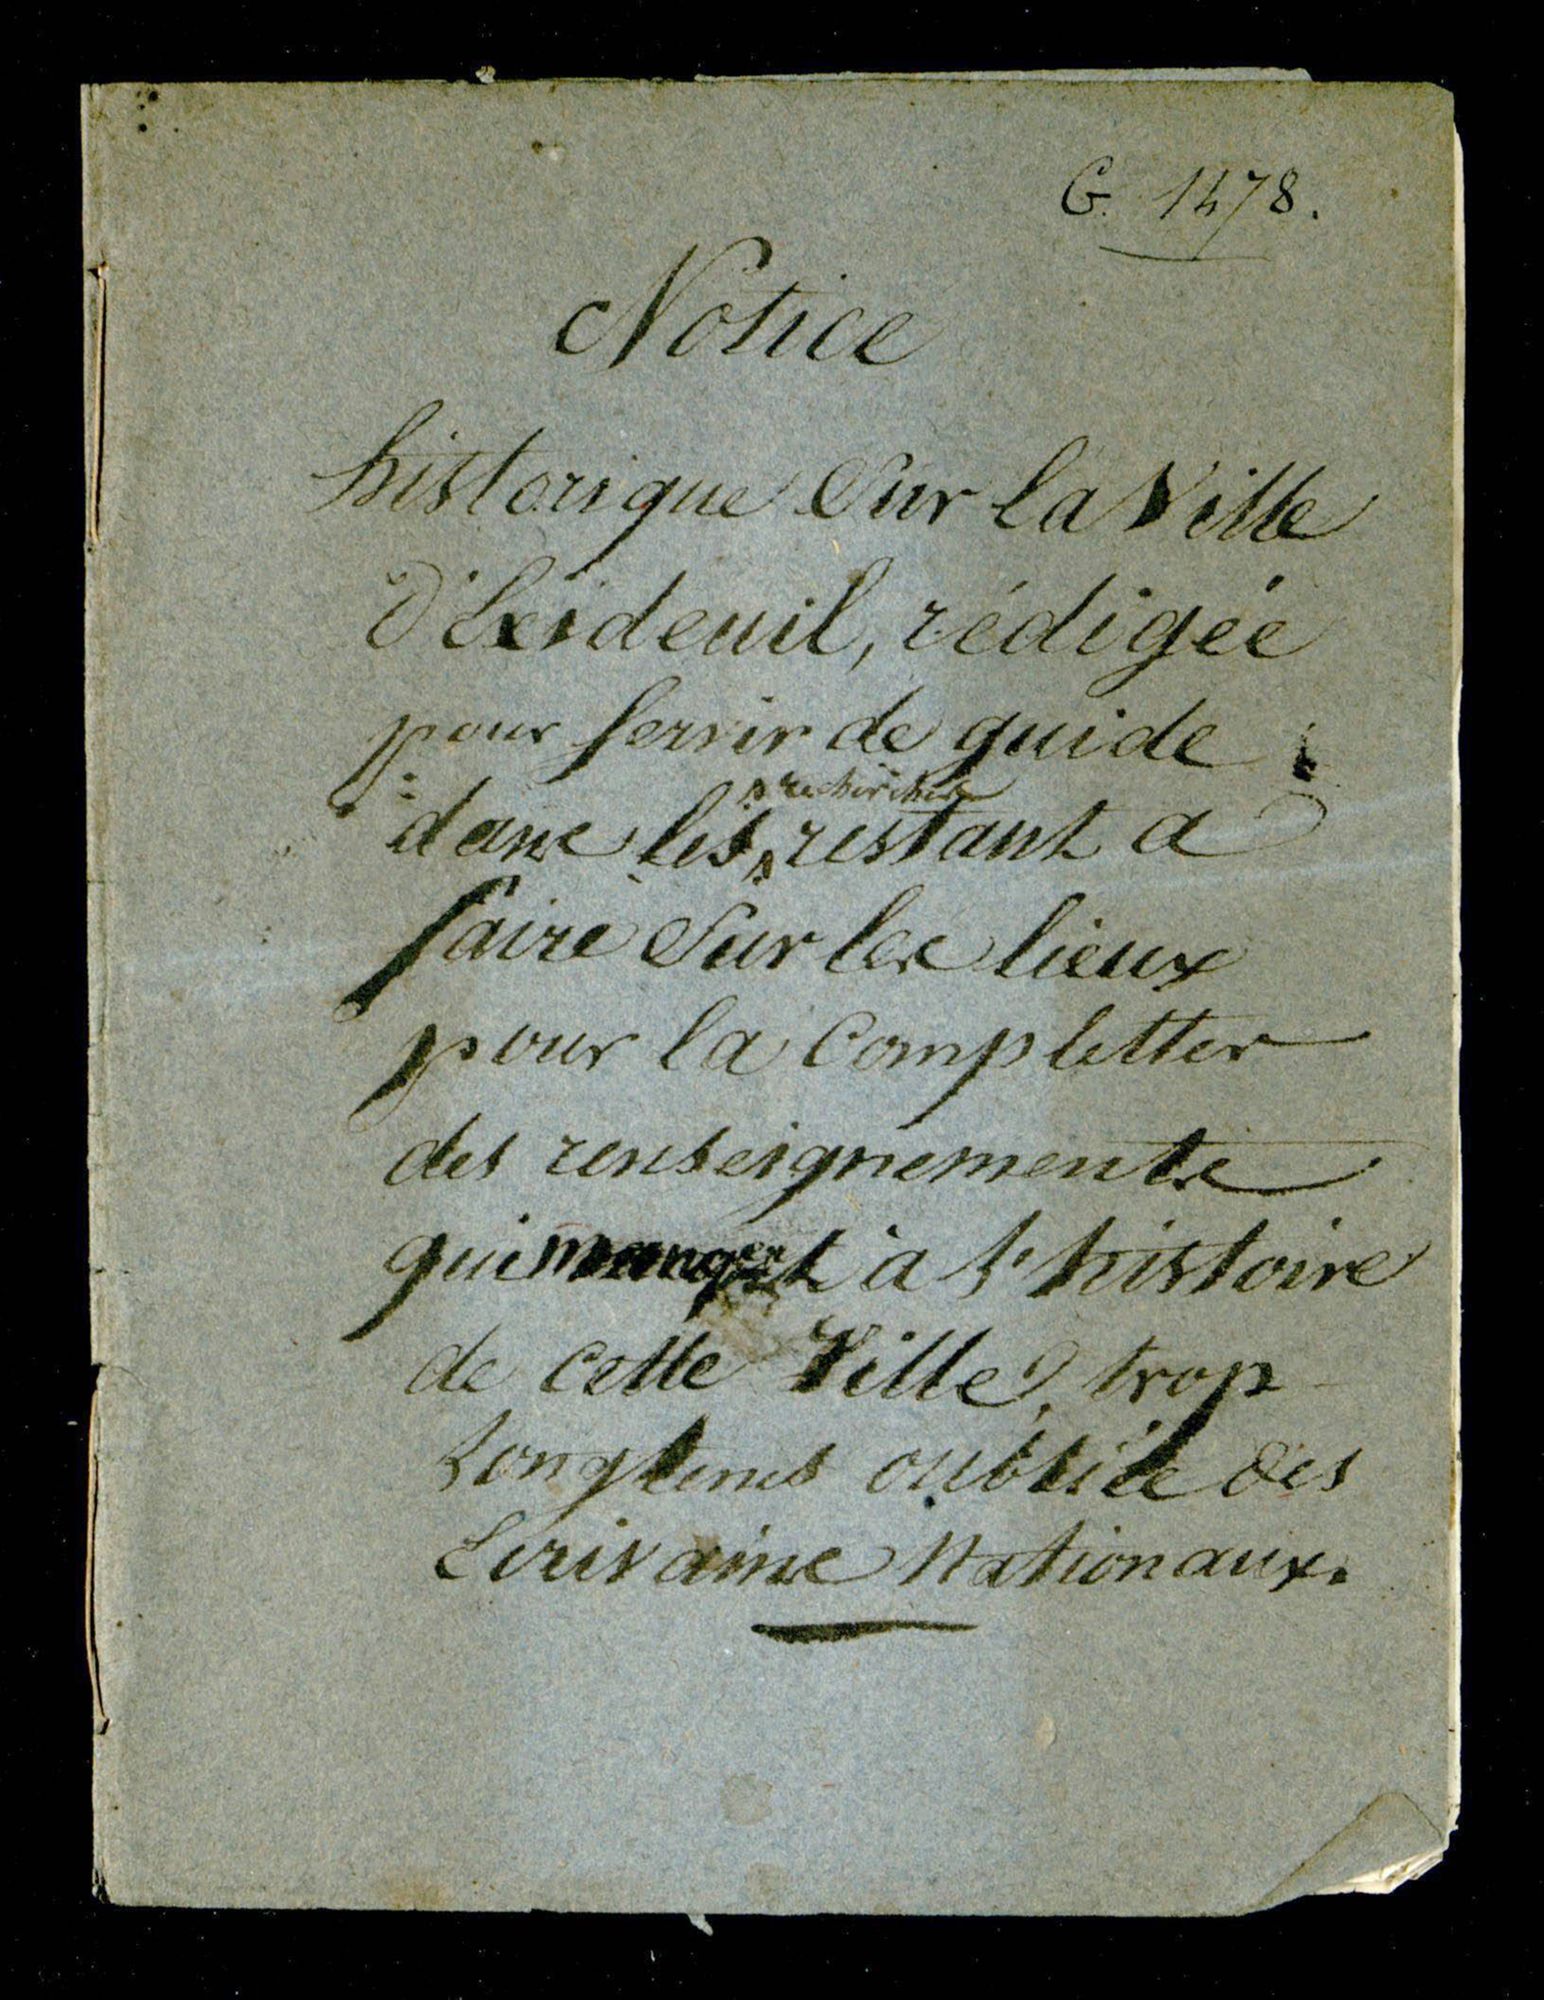 G. 1478.
Notice
historique Sur la Ville
d'Exideuil, rédigée
pour servir de guide
dans les recherches restant a
faire Sur les lieux
pour la Completter
des renseignements
qui manquent à l'histoire
de cette Ville, trop
longtems oubliée des
Ecrivains Nationaux.